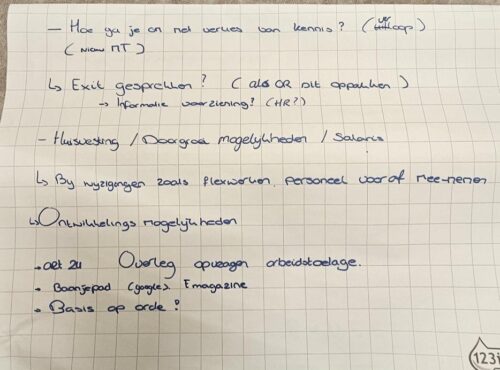 - Hoe ga je om met verlies van kennis? (verloop)
(nieuw MT)
↳ Exit gesprekken? (als OR dit oppakken)
→ Informatie voorziening? (HR?)
- Huisvesting / Doorgroei mogelijkheden / Salaris
↳ By wyzigingen zoals flexwerken, personeel vooraf mee-nemen
↳ Ontwikkelings mogelijkheden
• art 24 Overleg opvragen arbeidstoelage.
• Boonjepad (google). Emagazine
• Basis op orde?
123i